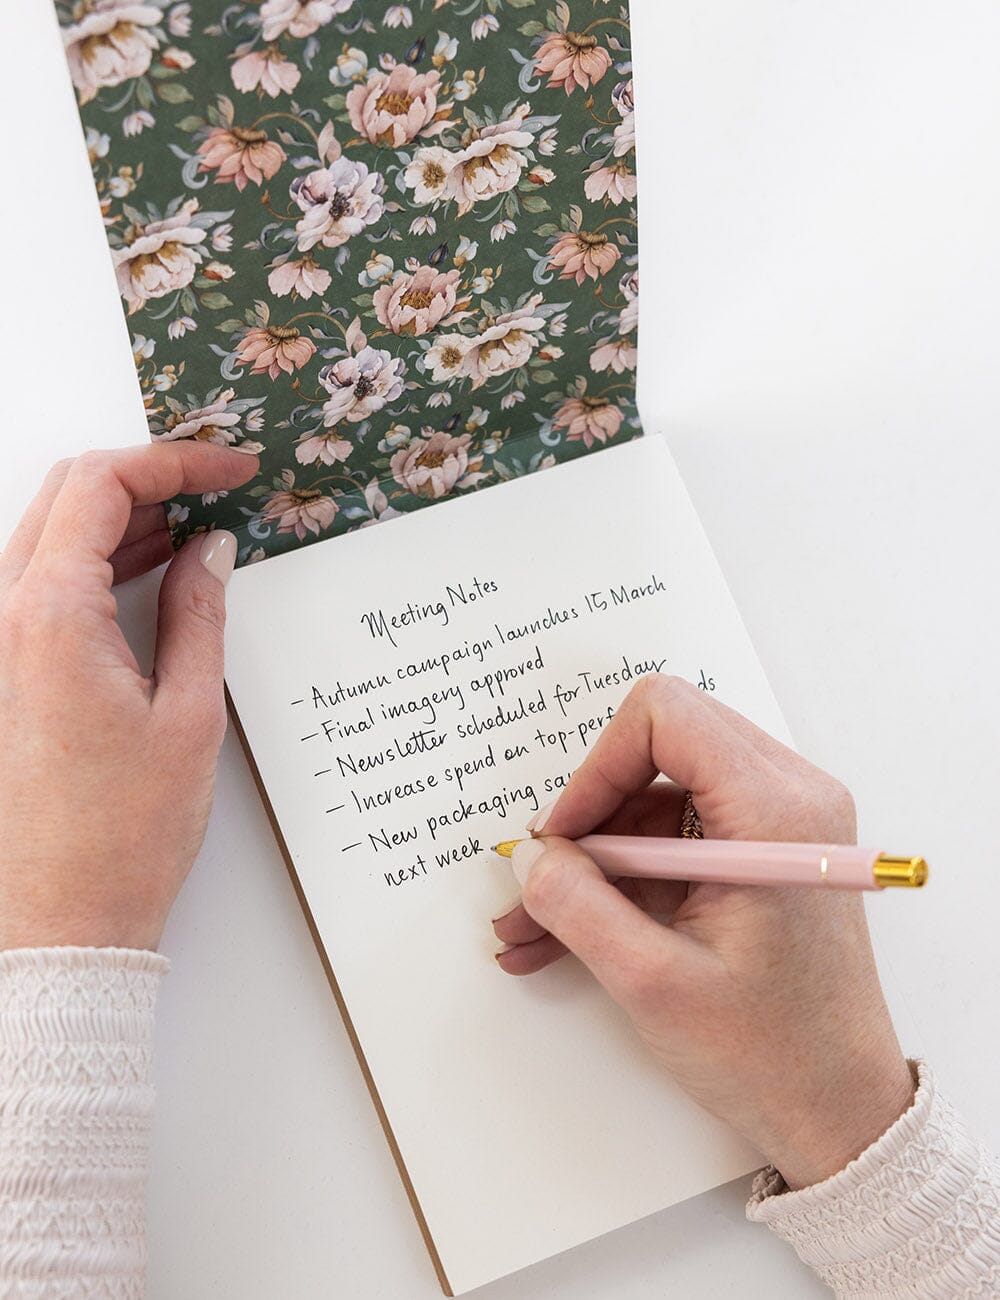 Meeting Notes
- Autumn campaign launches 15 March
- Final imagery approved
- Newsletter scheduled for Tuesday
- Increase spend on
- New packaging
next week